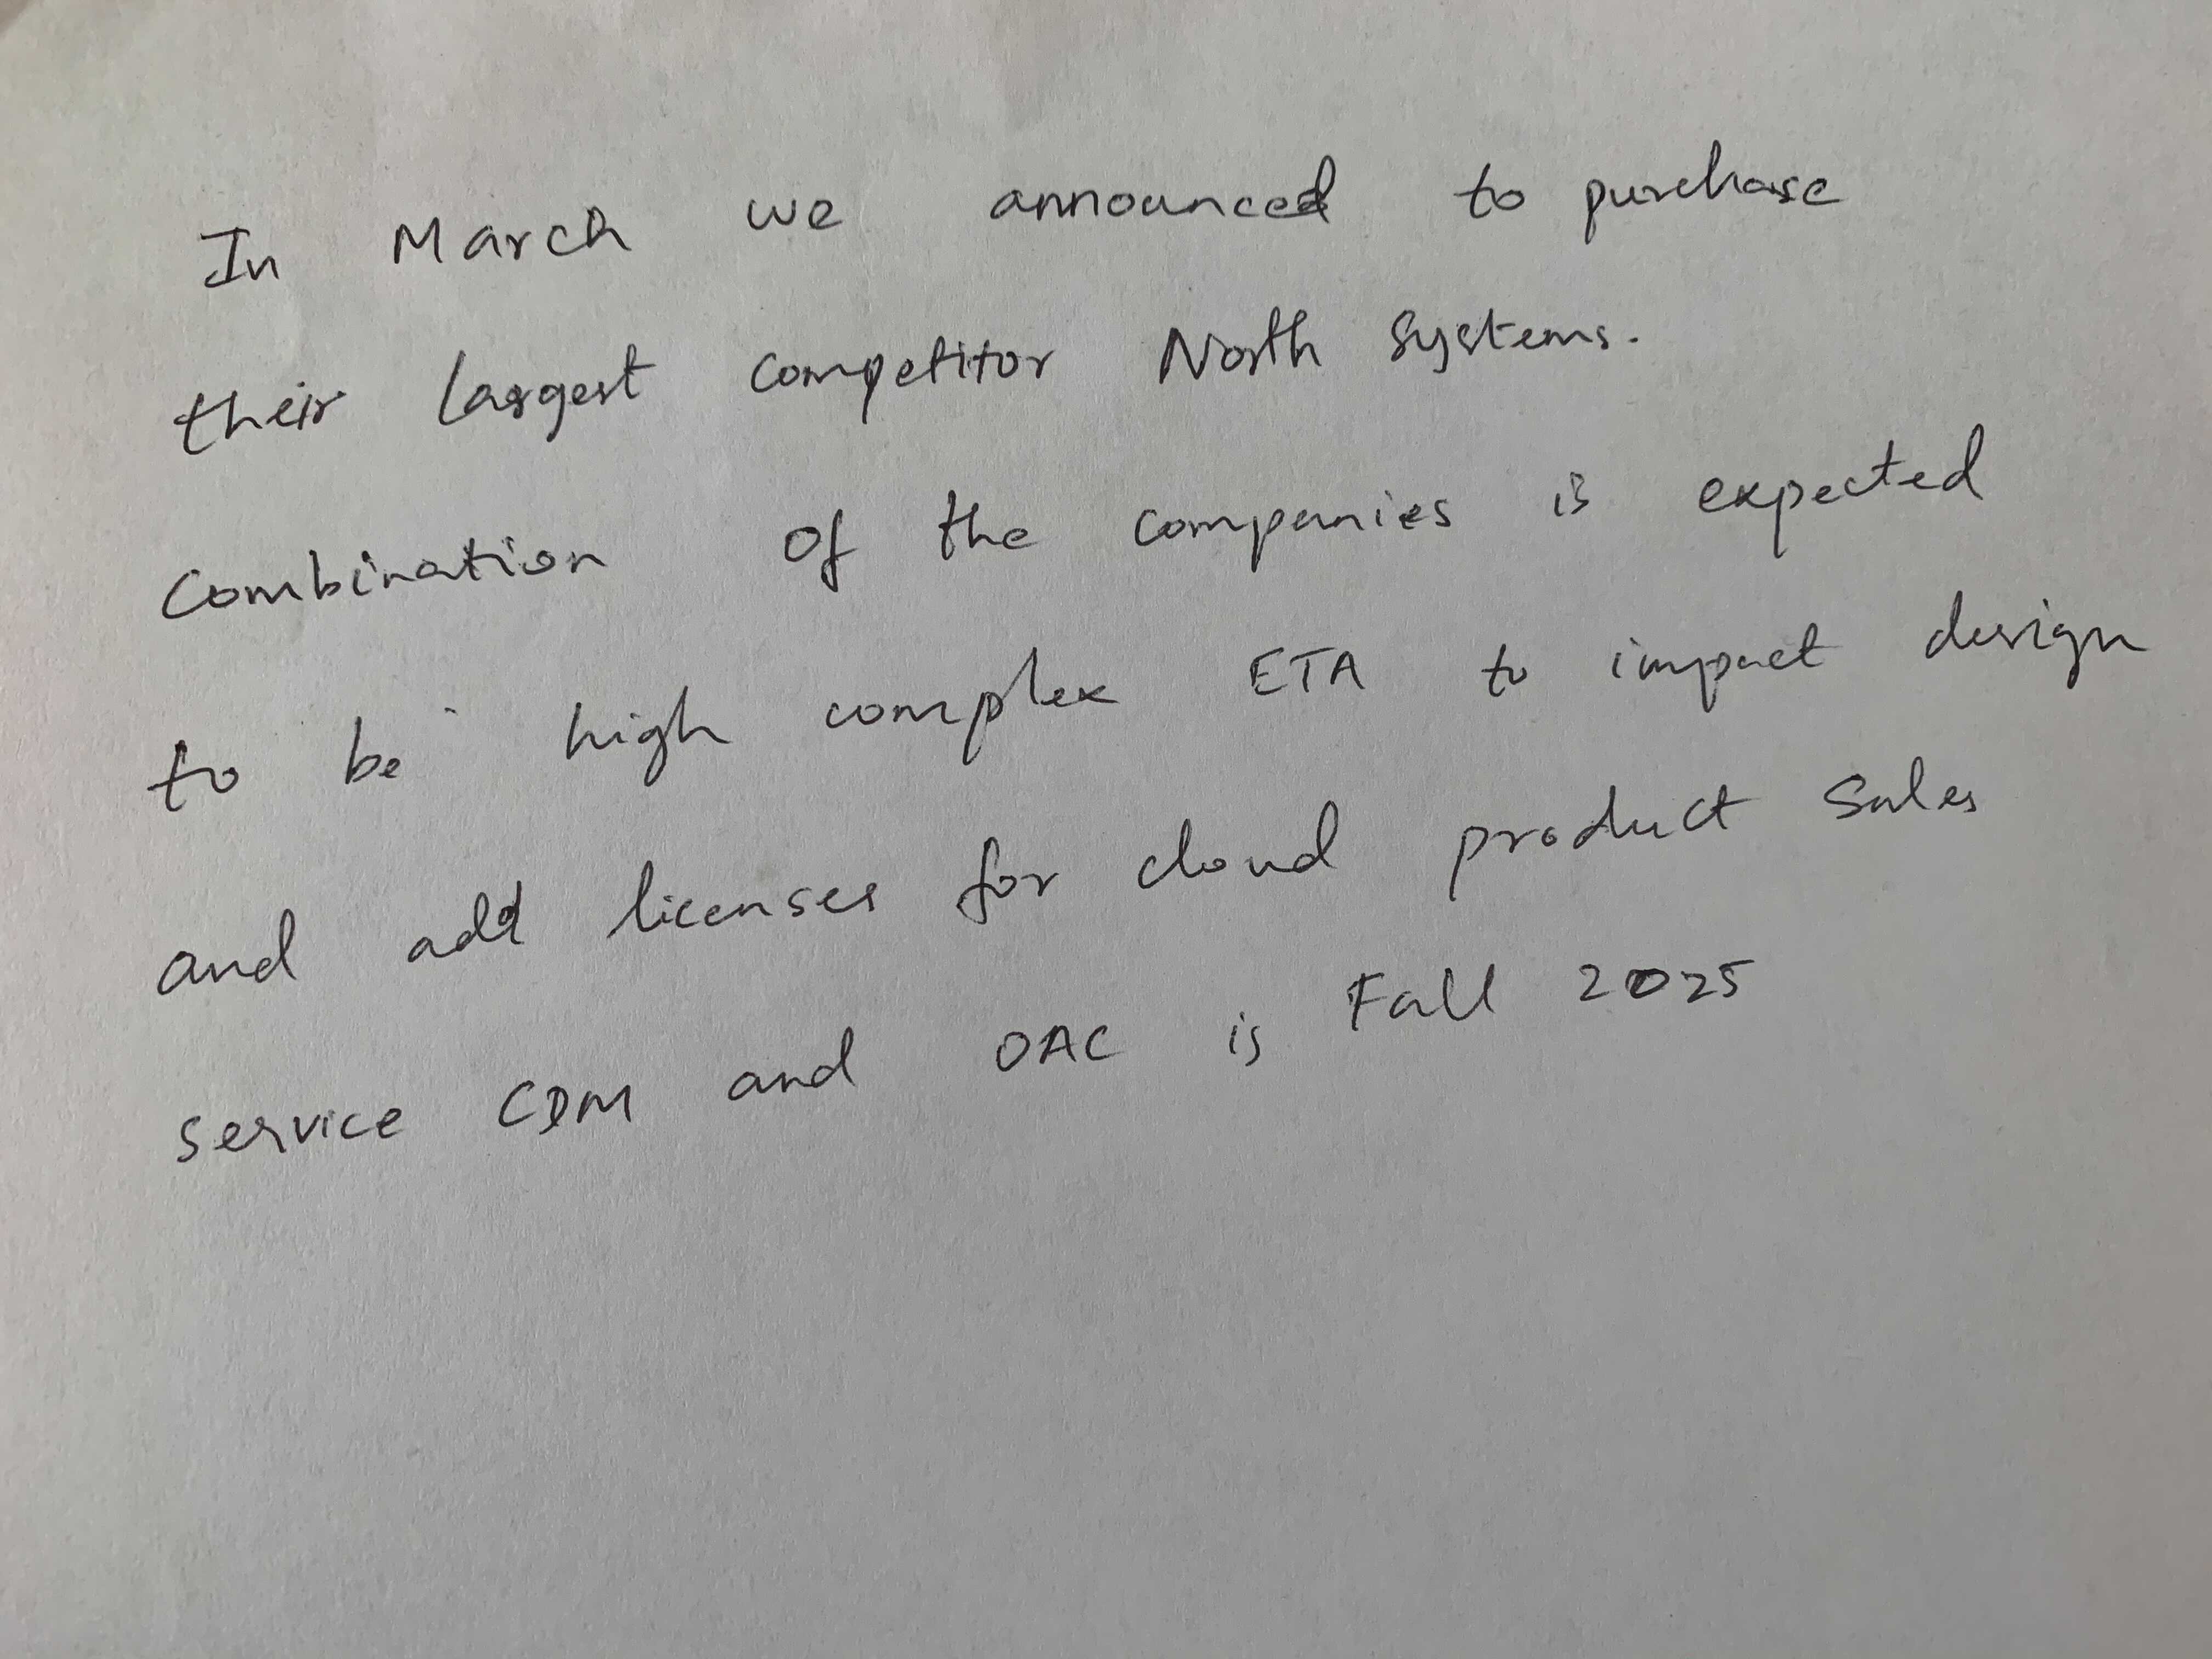 In March we announced to purchase
their largest competitor North Systems.
Combination of the companies is expected
to be high complex ETA to impact design
and add licenses for cloud product sales
service CDM and OAC is Fall 2025